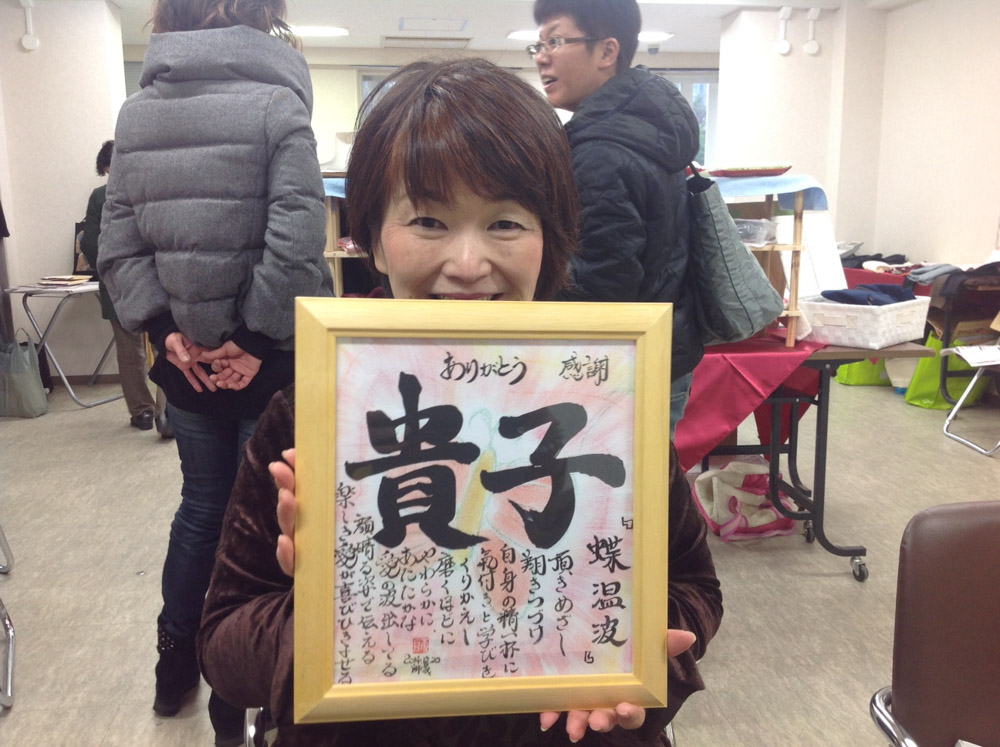 ありがとう 感謝
貴子
『蝶温波』
頂きめざし
翔きつづけ
自身の精一杯に
気付きと学びを
くりかえし
磨くほどに
やわらかに
あたたかな
愛の波出してる
顔晴る姿で伝える
楽しさ愛が喜びひきよせる